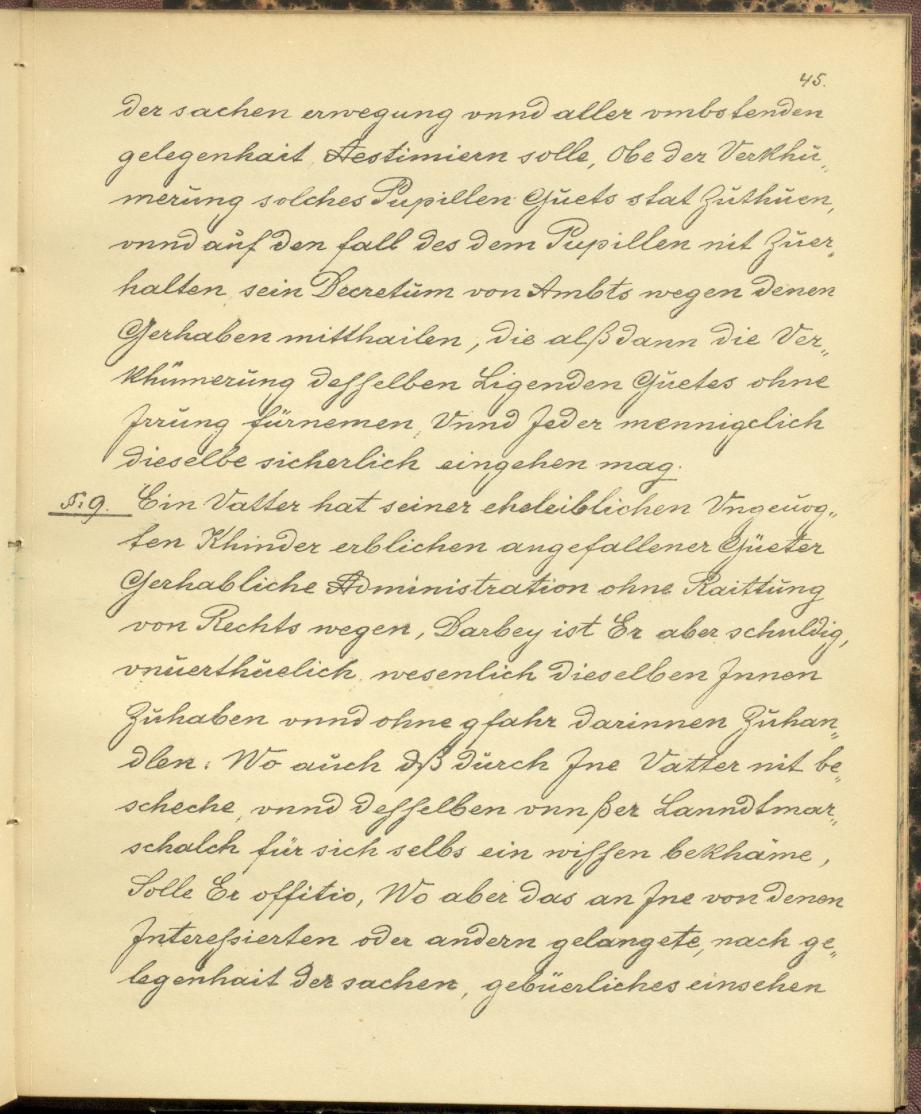 45.
der sachen erwegung vnnd aller vmbstenden
gelegenhait, Aestimiern solle, Obe der Verkhü„
merüng solches Pupillen Guets stat Züthüen,
vnnd aüf den fall des dem Pupillen nit Züer„
halten, sein Decretüm von Ambts wegen denen
Gerhaben mitthailen, die alß dann die Ver„
khümerüng desselben Ligenden Güetes ohne
Irrüng fürnemen, Vnnd Jeder mennigclich
dieselbe sicherlich eingehen mag.
§: 9. Ein Vatter hat seiner eheleiblichen Vngeuog„
ten Khinder erblichen angefallener Güeter
Gerhabliche Administration ohne Raittüng
von Rechts wegen, Darbey ist Er aber schuldig,
vnüerthüelich, wesenlich dieselben Innen
Zühaben vnnd ohne gfahr darinnen Zühan„
dlen. Wo aüch dß dürch Ine Vatter nit be„
scheche, vnnd desselben vnnßer Lanndtmar„
schalch für sich selbs ein wissen bekhäme,
Solle Er offitio, Wo aber das an Ine von denen
Interessierten oder andern gelangete, nach ge„
legenhait der sachen, gebüerliches einsehen